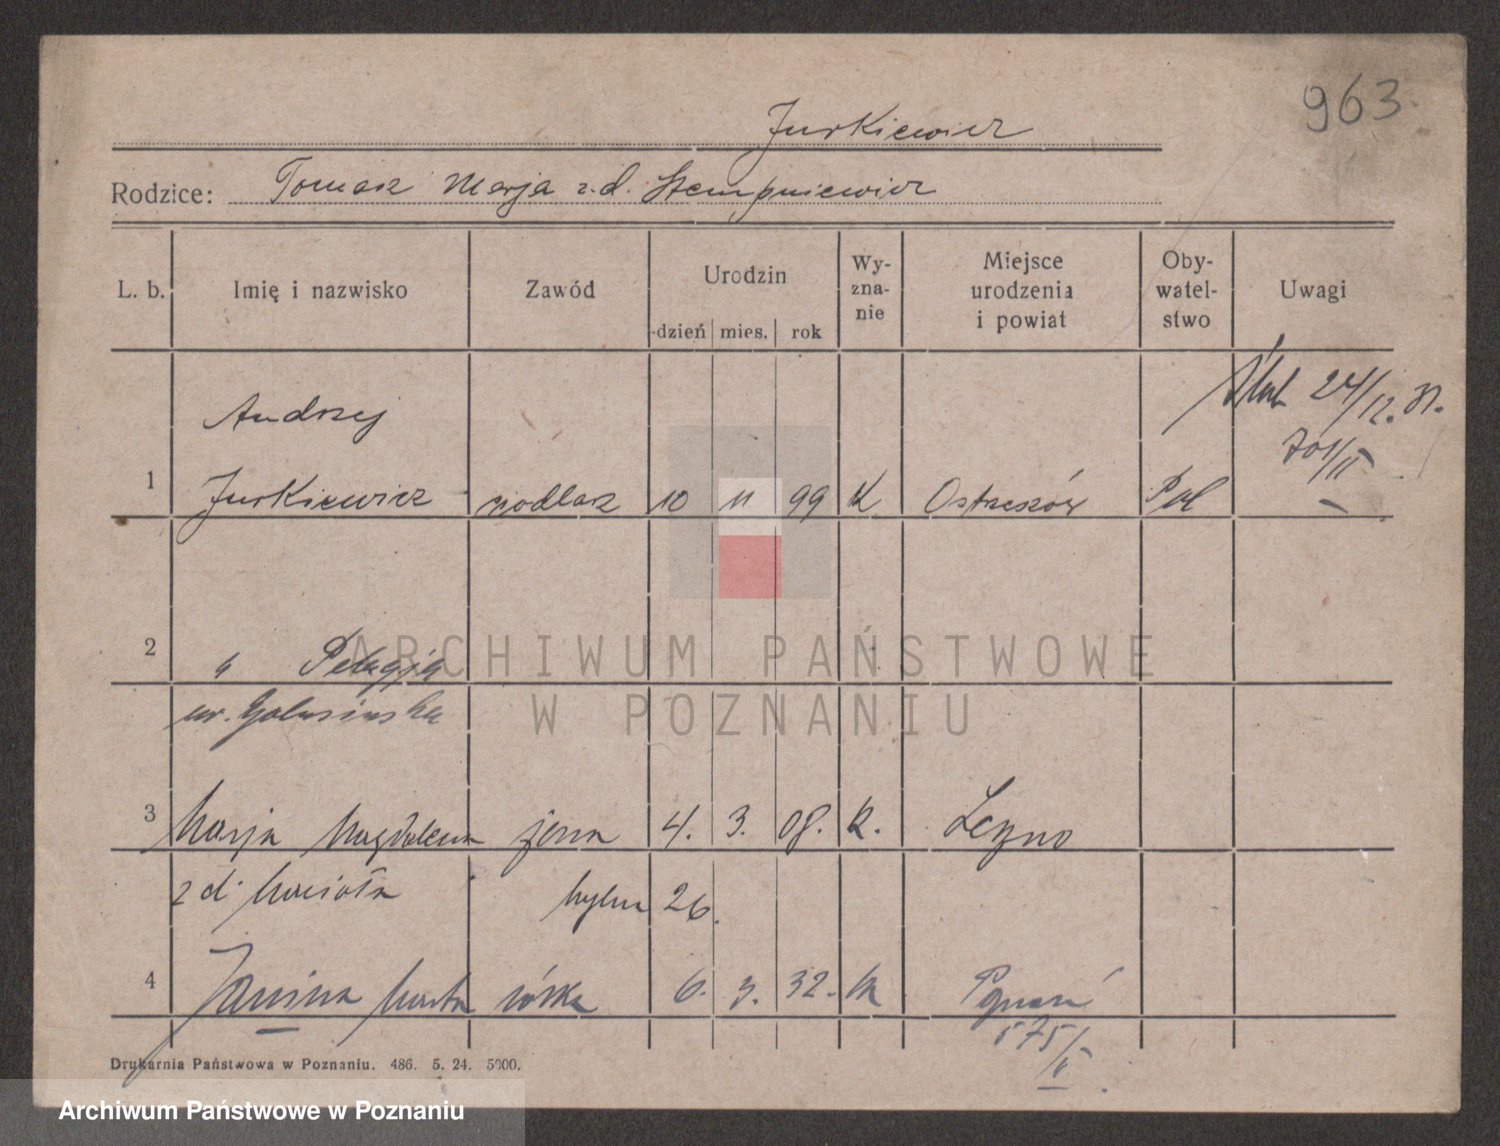 963
Jurkiewicz
Rodzice: Tomasz Marja z.d. Stempniewicz
L. b. Imię i nazwisko Zawód Urodzin dzień mies. rok Wy-zna-nie Miejsce urodzenia i powiat Oby-watel-stwo Uwagi
Ślub 24/12. 31.
701/II
Andrzej
1 Jurkiewicz siodlarz 10 11 99 K Ostrzeszów Pol
2 " Pelagja
ur. Galusińska
3 Marja Magdalena żona 4. 3. 08. k. Lezno
z d. Musioła 26.
4 Janina Marta córka 6. 3. 32. k Poznań
575/V
Drukarnia Państwowa w Poznaniu. 486. 5. 24. 5000.
ARCHIWUM PAŃSTWOWE
W POZNANIU
Archiwum Państwowe w Poznaniu